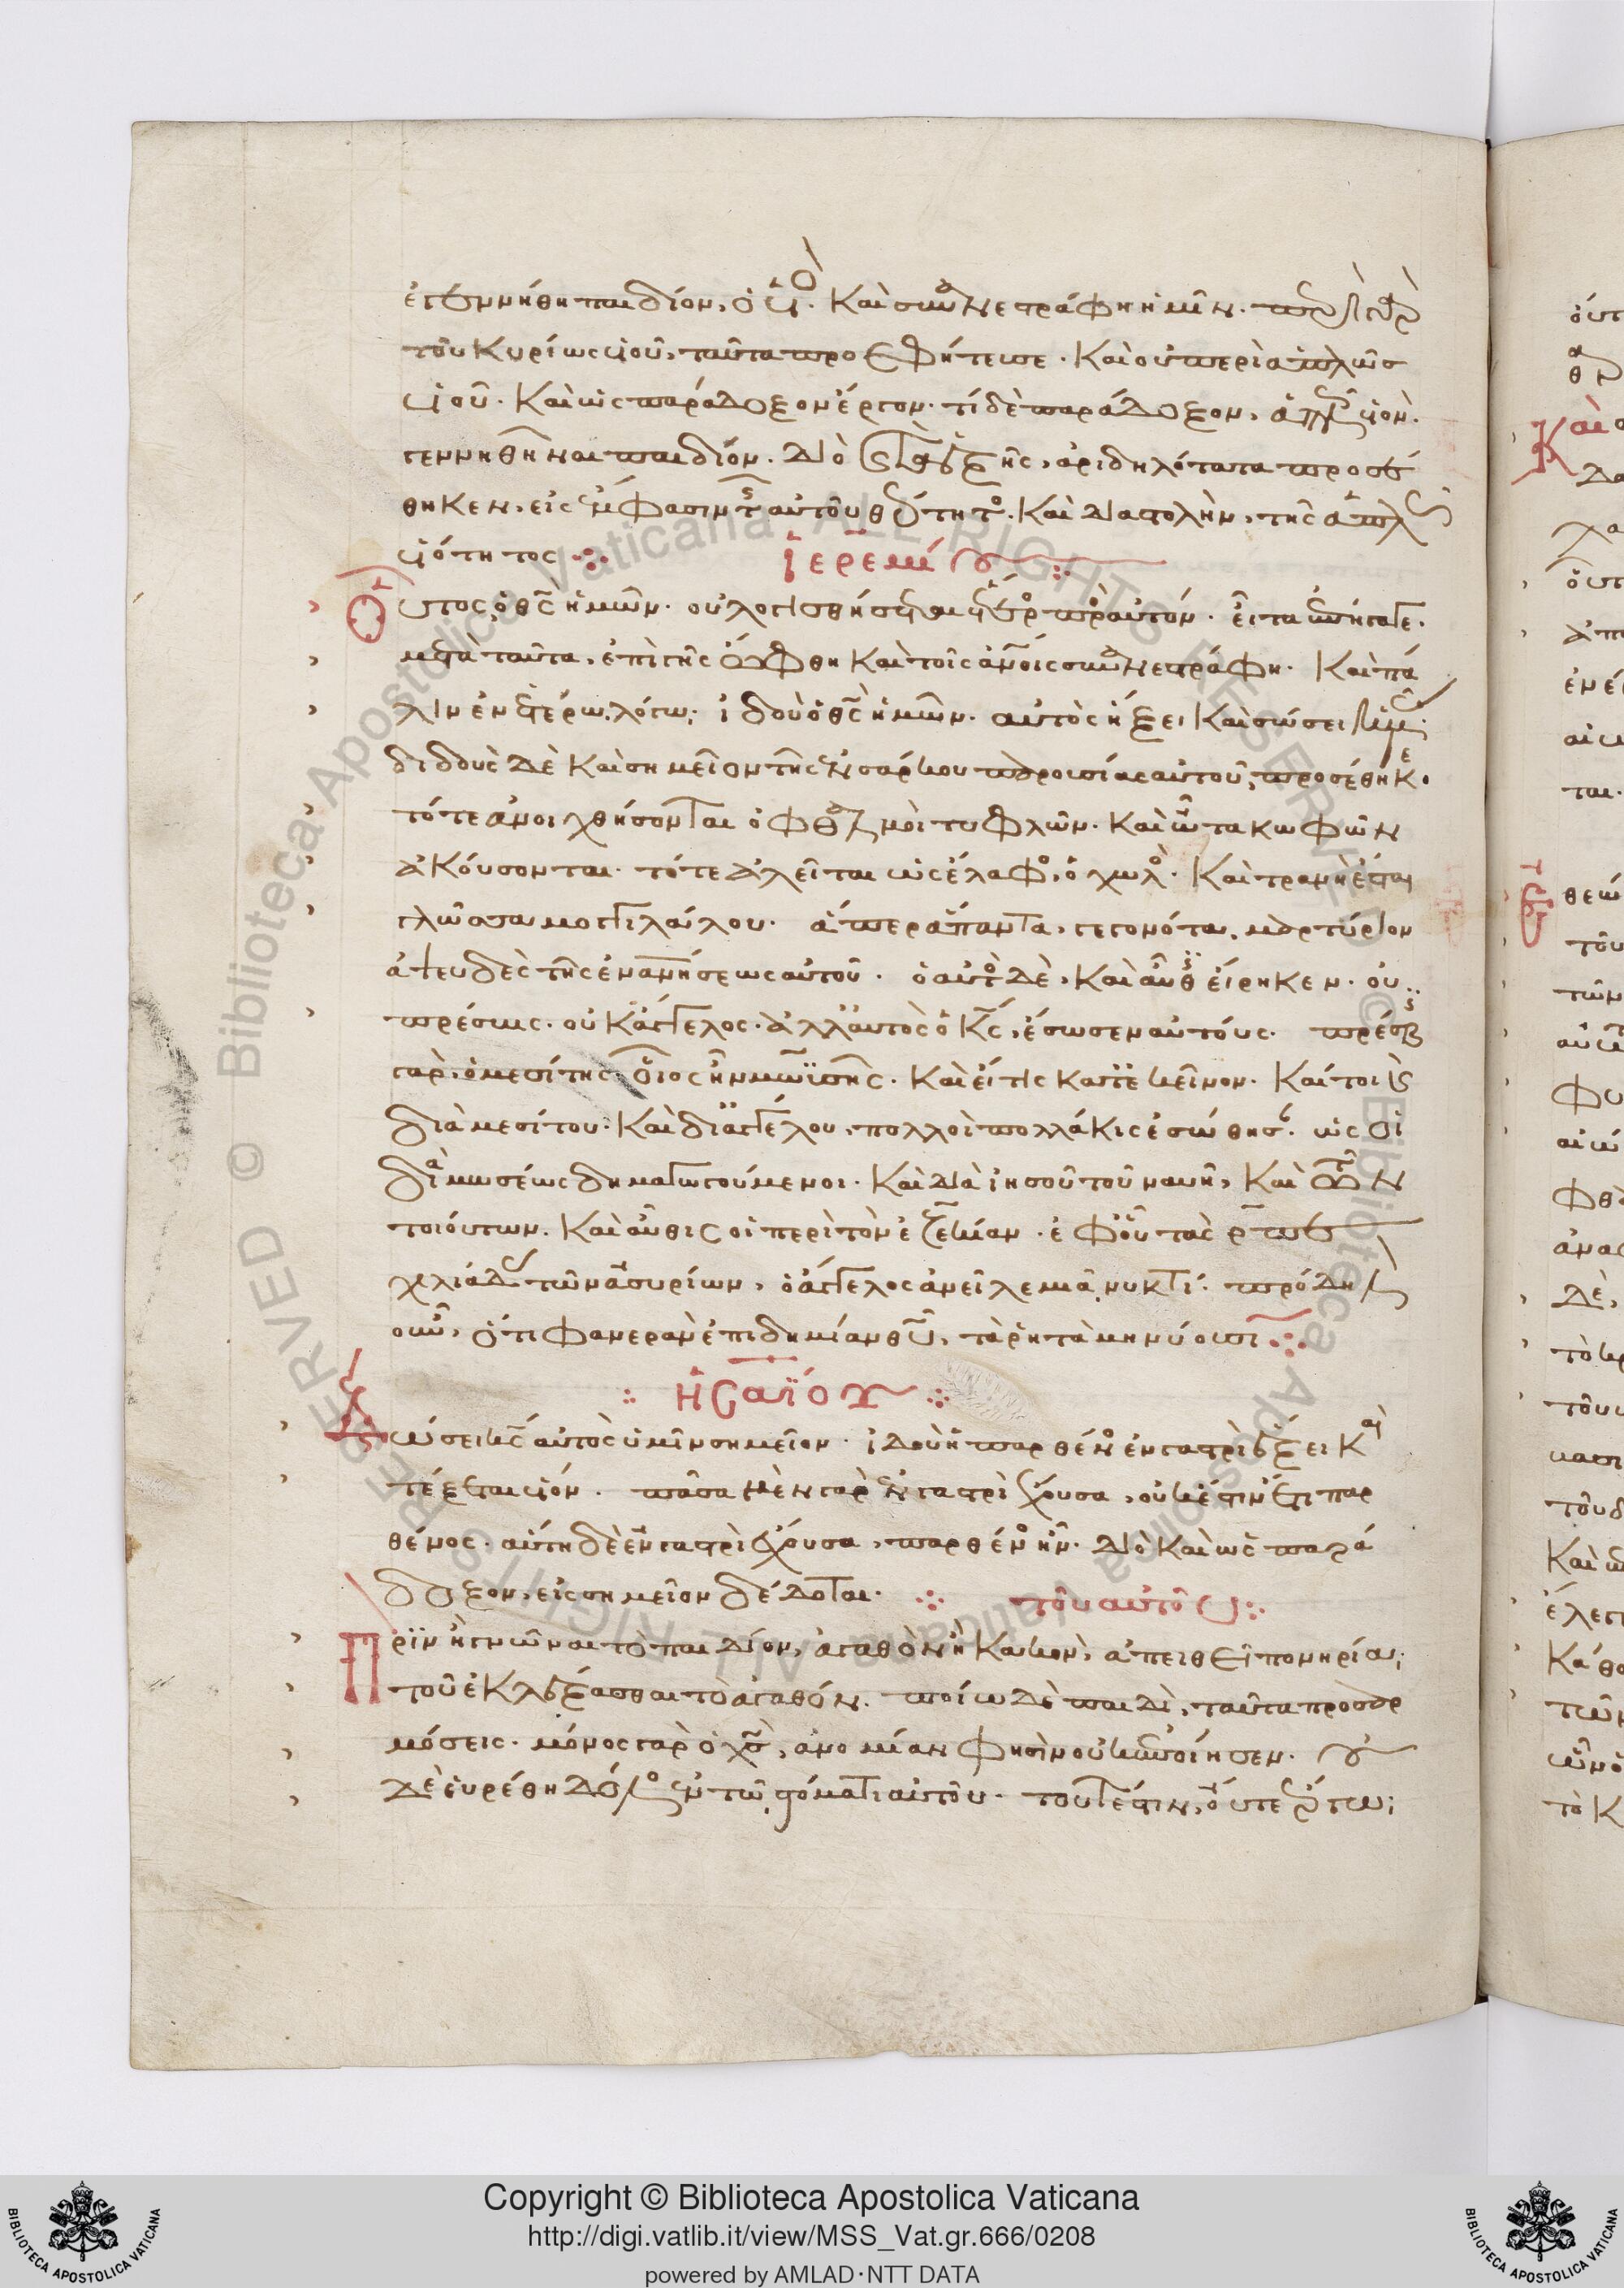 ἐγεννήθη παιδίον, ὁ υἱὸς. καὶ συνανεστράφη ἡμῖν. περὶ γὰρ
τοῦ κυρίως υἱοῦ, ταῦτα προεφήτευσε. καὶ οὐ περὶ ἁπλῶς
υἱοῦ. καὶ ὡς παράδοξον ἔργον. τί δὲ παράδοξον, ἁπλῶς υἱὸν
γεννηθῆναι παιδίον. διὸ ἑξῆς, ἀριδηλότατα προσέ
θηκεν, εἰς ἔμφασιν τῆς αὐτοῦ θεότητος. καὶ διαστολὴν, τῆς ἁπλῶς
υἱότητος
ἱερεμίου
Οὗτος ὁ θς ἡμῶν. οὐ λογισθήσεται ἕτερος πρὸς αὐτόν. εἶτα ἐπήγαγε.
μετὰ ταῦτα, ἐπὶ τῆς ὤφθη καὶ τοῖς ἀνοις συνανεστράφη. καὶ πά
λιν ἐν ἑτέρω λόγω· ἰδοὺ ὁ θς ἡμῶν. αὐτὸς ἥξει καὶ σώσει ἡμᾶς.
διδοὺς δὲ καὶ σημεῖον τῆς ἐνσάρκου παρουσίας αὐτοῦ, προσέθηκε.
τότε ἀνοιχθήσονται ὀφθαλμοὶ τυφλῶν. καὶ ὦτα κωφῶν
ἀκούσονται. τότε ἁλεῖται ὡς ἔλαφος, ὁ χωλὸς. καὶ τρανὴ ἔσται
γλῶσσα μογγιλάλου. ἅπερ ἅπαντα, γεγονότα, μαρτύριον
ἀψευδὲς τῆς ἐνανήσεως αὐτοῦ. ὁ αὐτὸς δὲ, καὶ αὖθις εἴρηκεν. οὐ
πρέσβυς. οὐκ ἄγγελος. ἀλλ' αὐτὸς ὁ κς, ἔσωσεν αὐτούς. πρέσβυς
γὰρ, ὁ μεσίτης, οἷος ἦν μωϋσῆς. καὶ εἴ τις κατ' ἐκεῖνον. καίτοι
διὰ μεσίτου. καὶ δι' ἀγγέλου, πολλοὶ πολλάκις ἐσώθησαν. ὡς οἱ
διὰ μωσέως δημαγωγούμενοι. καὶ διὰ ἰησοῦ τοῦ ναυῆ, καὶ τῶν
τοιούτων. καὶ αὖθις οἱ περὶ τὸν ἐζεκίαν. ἐφ' οὗ τὰς ρπε
χιλιάδας τῶν ἀσσυρίων, ὁ ἄγγελος ἀνεῖλε μιᾶ νυκτί. πρόδηλον
οὖν, ὅτι φανερὰν ἐπιδημίαν θυ, τὰ ῥητὰ μηνύουσι
ἡσαΐου
Δώσει κς αὐτὸς ὑμῖν σημεῖον. ἰδοὺ ἡ παρθένος ἐν γαστρὶ ἕξει καὶ
τέξεται υἱόν. πᾶσα μὲν γὰρ ἐν γαστρὶ ἔχουσα, οὐκ ἔστιν ἔτι παρ
θένος. αὕτη δὲ ἐν γαστρὶ ἔχουσα, παρθένος ἦν. διὸ καὶ ὡς παρά
δοξον, εἰς σημεῖον δέδοται. τοῦ αὐτοῦ
Πρὶν ἢ γνῶναι τὸ παιδίον, ἀγαθὸν ἢ κακὸν, ἀπειθεῖ πονηρία,
τοῦ ἐκλέξασθαι τὸ ἀγαθόν. ποίω δὲ παιδὶ, ταῦτα προσαρ
μόσεις. μόνος γὰρ ὁ χς, ἀνομίαν φησὶν οὐκ ἐποίησεν. οὐ
δὲ εὑρέθη δόλος ἐν τῶ στόματι αὐτοῦ. τουτέστιν, οὔτε ἔργω,
Copyright © Biblioteca Apostolica Vaticana
http://digi.vatlib.it/view/MSS_Vat.gr.666/0208
powered by AMLAD·NTT DATA